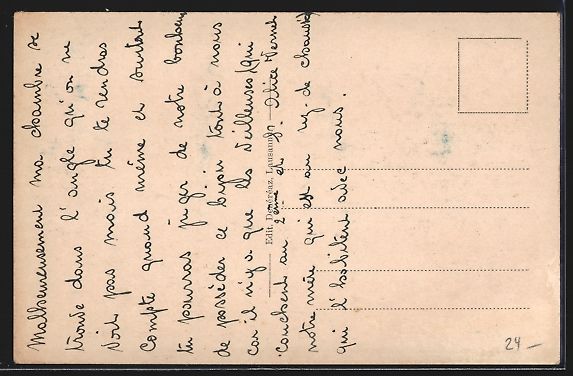 Malheureusement ma chambre se
trouve dans l'angle qu'on ne
voit pas mais tu te rendras
compte quand même et surtout
tu pourras juger de notre bonheur
de posséder ce bijou toute à nous
car il n'y a que les veilleuses qui
couchent au 2ème et Alice Vernet
notre mère qui est au rez-de-chaussée
qui l'habitent avec nous.
Edit. Dénéréaz, Lausanne
24 -